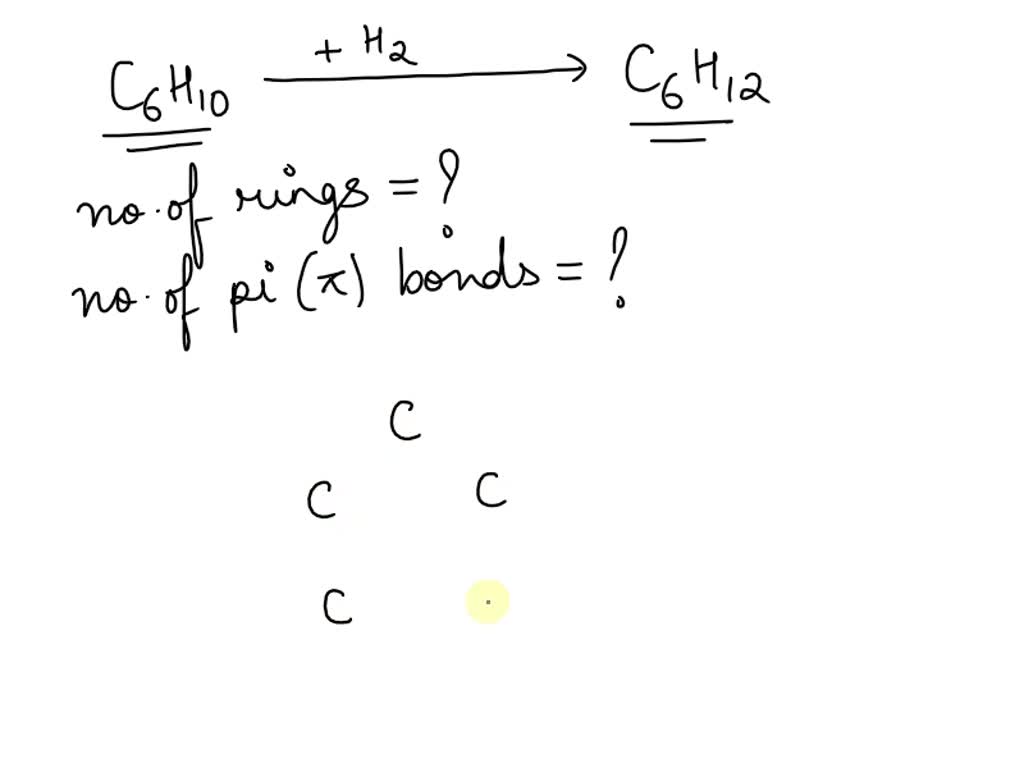 C6H10 + H2 → C6H12
no. of rings = ?
no. of pi (π) bonds = ?
C
C C
C